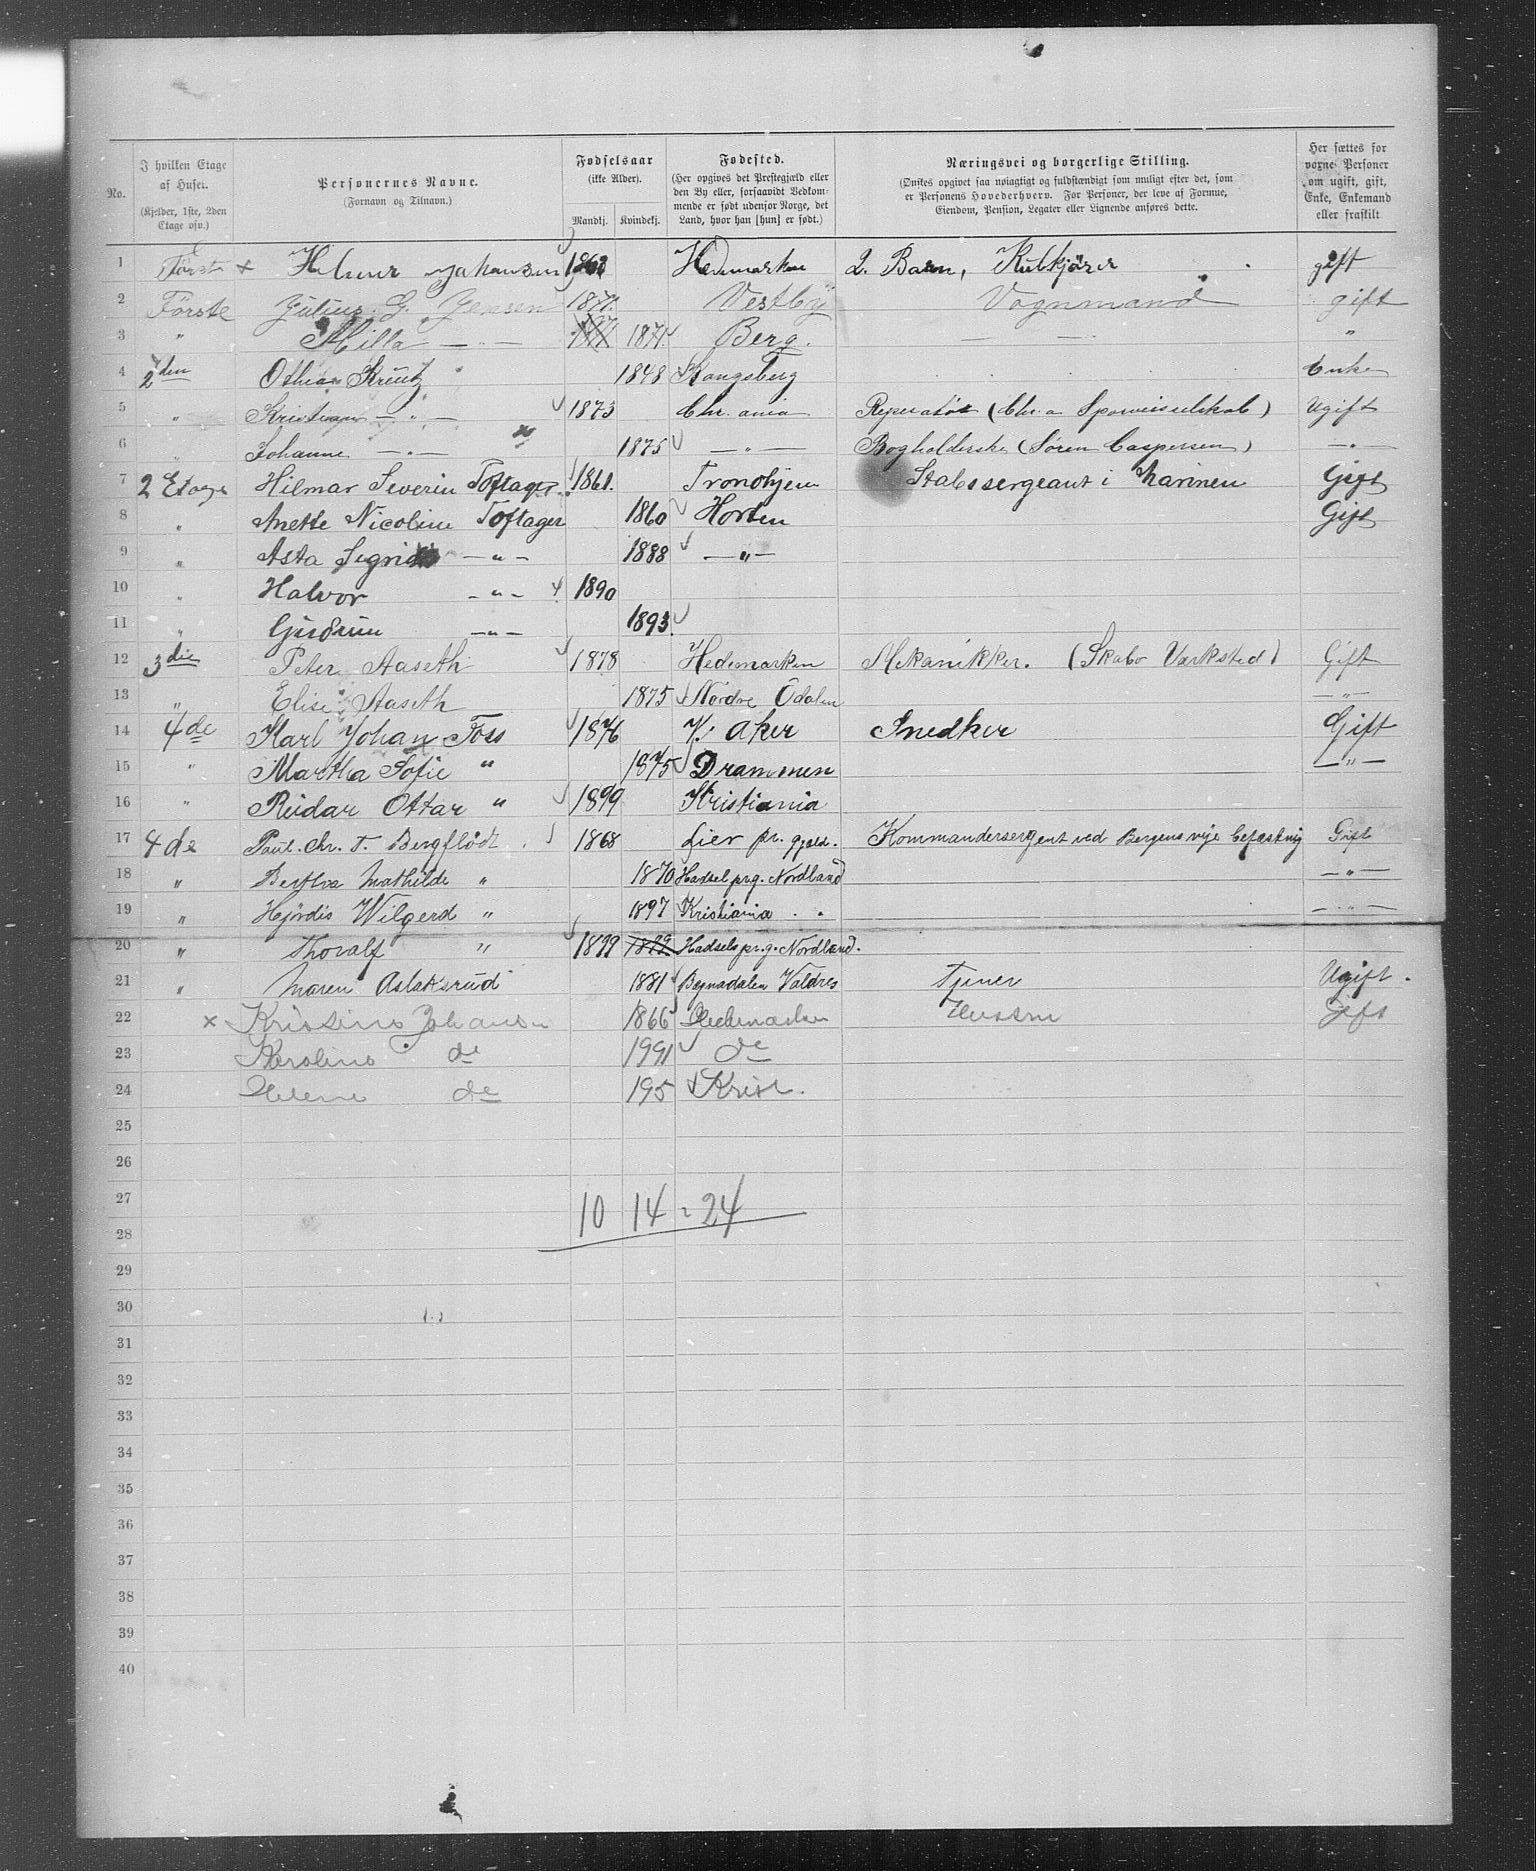 No.
I hvilken Etage af Huset. (Kjelder, 1ste, 2den Etage osv.)
Personernes Navne. (Fornavn og Tilnavn.)
Fødselsaar (ikke Alder). Mandkj. Kvindekj.
Fødested. (Her opgives det Prestegjæld eller den By eller, forsaavidt Vedkommende er født udenfor Norge, det Land, hvor han [hun] er født.)
Næringsvei og borgerlige Stilling. (Ønskes opgivet saa nøiagtigt og fuldstændigt som muligt efter det, som er Personens Hovederhverv. For Personer, der leve af Formue, Eiendom, Pension, Legater eller Lignende anføres dette.)
Her sættes for voxne Personer om ugift, gift, Enke, Enkemand eller fraskilt
1 Første x Johansen Hedmarken 2. Barn, Kulkjører gift
2 Første Julius G. Jensen 1871. Vestby Vognmand gift
3 " Milla — " — 1874 Berg. — " — "
4 2den Othea Kreutz 1848 Kongsberg Enke
5 " Kristian — " — 1873 Chr.ania Reperatør (Chr.a Sporveisselskab) Ugift
6 " Johanne — " — x 1875 — " — Bogholderske (Søren Caspersen) — " —
7 2 Etage Hilmar Severin Toftager. 1861. Trondhjem Stabssergeant i Marinen Gift
8 " Anette Nicoline Toftager 1860 Horten Gift
9 " Asta Sigrid — " — 1888 — " —
10 " Halvor — " — 1890
11 " Gudrun — " — 1893.
12 3die Peter Aaseth 1878 Hedemarken Mekanikker. (Skabo Værksted) Gift
13 " Elise Aaseth 1875 Nordre Odalen — " —
14 4de Karl Johan Foss 1876 V. Aker Snedker Gift
15 " Martha Sofie " 1875 Drammen — " —
16 " Reidar Ottar " 1899 Kristiania
17 4de Paul. Chr. T. Bergflødt 1868 Lier pr. gjæld. Kommandersergent ved Bergens nye befæstnig Gift
18 " Bertha Mathilde " 1870 Hadsel prg. Nordland — " —
19 " Hjørdis Wilgerd " 1897 Kristiania — " —
20 " Thoralf " 1899 1899 Hadsels pr.g. Nordland.
21 " Maren Aslaksrud 1881 Begnadalen Valdres Tjener Ugift.
22 x Kristine Johansen 1866 Hedemarken Hustru Gift
23 Karoline do 1991 do
24 Helene do 195 Krist.
25
26
27 10 14 = 24
28
29
30
31
32
33
34
35
36
37
38
39
40